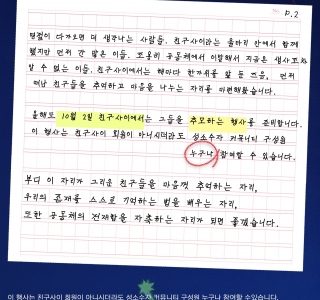 P.2
명절이 다가오면 더 생각나는 사람들. 친구사이라는 울타리 안에서 함께
했지만 먼저 간 많은 이들. 조용히 공동체에서 이탈해서 지금은 생사조차
알 수 없는 이들. 친구사이에서는 해마다 한가위를 앞 둔 즈음, 먼저
떠난 친구들을 추억하고 마음을 나누는 자리를 마련해왔습니다.
올해도 10월 2일 친구사이에서는 그들을 추모하는 행사를 준비합니다.
이 행사는 친구사이 회원이 아니시더라도 성소수자 커뮤니티 구성원
누구나 참여할 수 있습니다.
부디 이 자리가 그리운 친구들을 마음껏 추억하는 자리,
우리의 존재를 스스로 기억하는 법을 배우는 자리,
또한 공동체의 건재함을 자축하는 자리가 되면 좋겠습니다.
이 행사는 친구사이 회원이 아니시더라도 성소수자 커뮤니티 구성원 누구나 참여할 수있습니다.